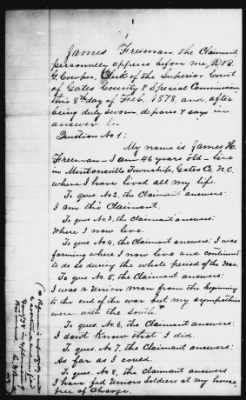 1
James Freeman the Claimant
personally appears before me, R. B.
G. Cowper, Clerk of the Superior Court
of Gates County & Special Commissioner
this 8th day of Feb. 1878, and, after
being duly sworn, deposes & says in
answer to
Question No 1:
My name is James H.
Freeman I am 46 years old - live
in Mintonsville Township, Gates Co. N.C.
where I have lived all my life.
To ques. No 2, the claimant answers:
I am the Claimant.
To ques No 3, the claimant answers:
Where I now live.
To ques No 4, the Claimant answers: I was
farming where I now live and continued
to do so during the whole period of the War.
To ques No 5, the claimant answers:
I was a Union man from the beginning
to the end of the war but my sympathies
were with the South.
To ques. No 6, the Claimant answers:
I don't know that I did.
To ques. No 7, the Claimant answers:
As far as I could
To ques. No 8, the claimant answers
I have fed Union Soldiers at my house,
free of Charge.